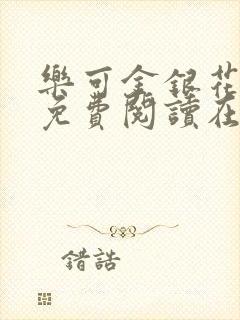 樂可金銀花
免費閱讀在
錯誥